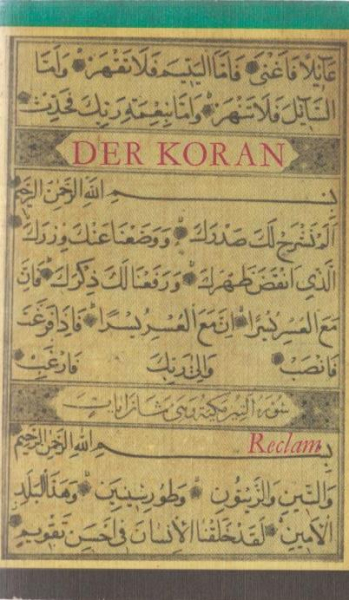 عَائِلًا فَأَغْنَى فَأَمَّا الْيَتِيمَ فَلَا تَقْهَرْ وَأَمَّا
السَّائِلَ فَلَا تَنْهَرْ وَأَمَّا بِنِعْمَةِ رَبِّكَ فَحَدِّثْ
DER KORAN
بِسْمِ اللَّهِ الرَّحْمَنِ الرَّحِيمِ
أَلَمْ نَشْرَحْ لَكَ صَدْرَكَ وَوَضَعْنَا عَنْكَ وِزْرَكَ
الَّذِي أَنْقَضَ ظَهْرَكَ وَرَفَعْنَا لَكَ ذِكْرَكَ فَإِنَّ
مَعَ الْعُسْرِ يُسْرًا إِنَّ مَعَ الْعُسْرِ يُسْرًا فَإِذَا فَرَغْتَ
فَانْصَبْ وَإِلَى رَبِّكَ فَارْغَبْ
سورة التين مكية وهي ثمان آيات
بِسْمِ اللَّهِ الرَّحْمَنِ الرَّحِيمِ
Reclam
وَالتِّينِ وَالزَّيْتُونِ وَطُورِ سِينِينَ وَهَذَا الْبَلَدِ
الْأَمِينِ لَقَدْ خَلَقْنَا الْإِنْسَانَ فِي أَحْسَنِ تَقْوِيمٍ